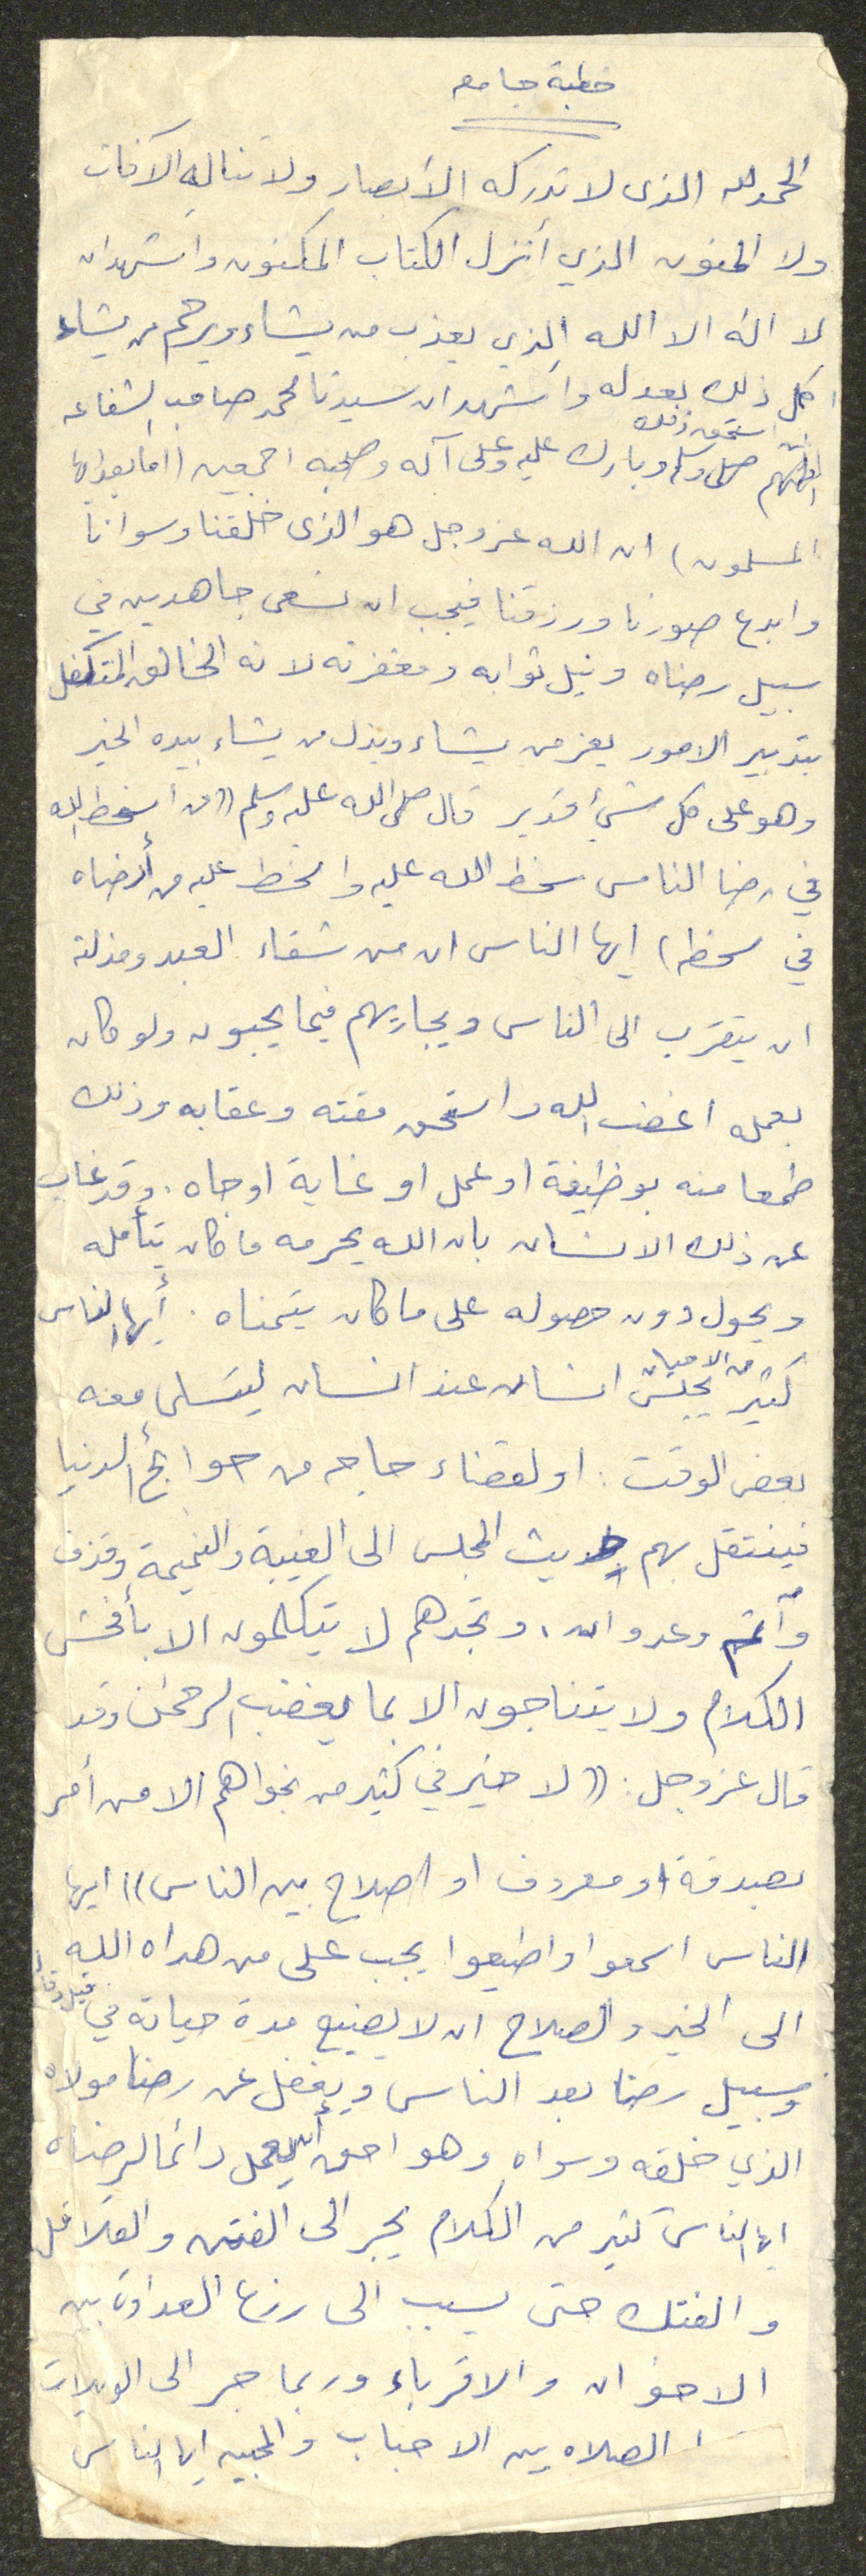 خطبة جامع
الحمد لله الذى لا تدركه الأبصار ولا تناله الآفات
ولا المنون الذي أنزل الكتاب المكنون واشهد ان
لا اله الا الله الذي يعذب من يشاء ويرحم من يشاء
كل ذلك بعدله وأشهد ان سيدنا محمد صاحب الشفاعه
استحق ذلك
اللهم صل وسلم وبارك عليه وعلى آله وصحبه اجمعين (اما بعد ايها
المسلمون) ان الله عز وجل هو الذى خلقنا وسوانا
وابدع صورنا ورزقنا فيجب ان نسعى جاهدين في
سبيل رضاه ونيل ثوابه ومغفرته لانه الخالق المتكفل
بتدبير الامور يعز من يشاء ويذل من يشاء بيده الخير
وهو على كل شيء قدير قال صلى الله عليه وسلم ((من أسخط الله
في رضا الناس سخط الله عليه واسخط عليه من أرضاه
في سخطه) ايها الناس ان من شقاء العبد ومذلته
ان يتقرب الى الناس ويجاريهم فيما يحبون ولو كان
بعمله اغضب الله واستحق مقته وعقابه وذلك
طمعا منه بوظيفة او عمل او غاية او جاه. وقد غاب
عن ذلك الانسان بان الله يحرمه ما كان يتأمله
ويحول دون حصوله على ما كان يتمناه. أيها الناس
كثير من الاحيان يجلس انسان عند انسان ليتسلى معه
بعض الوقت. او لقضاء حاجه من حوائج الدنيا
فينتقل بهم حديث المجلس الى الغيبة والنميمة وقذف
وآثم وعدوان. وتجدهم لا يتكلمون الا بأفحش
الكلام ولا يتناجون الا بما يغضب الرحمن وقد
قال عز وجل: ((لا خير في كثير من نجواهم الا من أمر
بصدقة او معروف او اصلاح بين الناس)) ايها
الناس اسمعوا واطيعوا يجب على من هداه الله
الى الخير والصلاح ان لا يضيع مدة حياته في قيل وقال
وسبيل رضا بعد الناس ويغفل عن رضا مولاه
الذي خلقه وسواه وهو احق أن يعمل دائما لرضاه
ايها الناس كثير من الكلام يجر الى الفتن والقلاقل
والفتك حتى يسبب الى زرع العداوة بين
الاخوان والاقرباء وربما جر الى الويلات
بين الاحباب والمحبيه ايها الناس